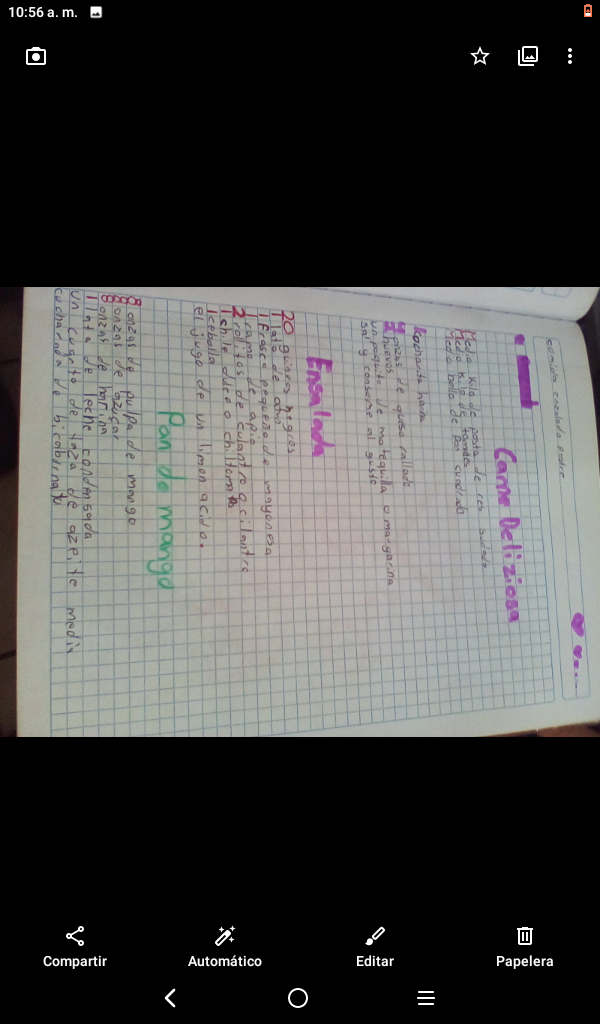 10:56 a. m.
comida ensalada postre
Carne Deliziosa
Medio kilo de posta de res sudada
Medio kilo de tamdes
Medio bollo de pan cuadrado
1 cucharita harina
4 onzas de queso rallado
2 huevos
un poquito de matequilla o margarina
sal y consome al gusto
Ensalada
20 guineos negros
1 lata de atun
1 Frasco pequeño de mayonesa
1 ramo de apio
2 rollitos de culantro o cilantro
1 chile dulce o chiltoma
1 cebolla
el jugo de un limon acido.
Pan de mango
8 onzas de pulpa de mango
8 onzas de azúcar
8 onzas de harina
1 lata de leche condensada
un cuarto de taza de azeite media
cucharada de bicabirnato
Compartir
Automático
Editar
Papelera